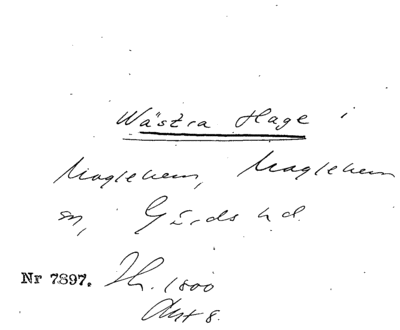 Wästra Hage i
Maglehem, Maglehem
sn, Gärds hd.
Nr 7897. Th. 1800
Akt 8.